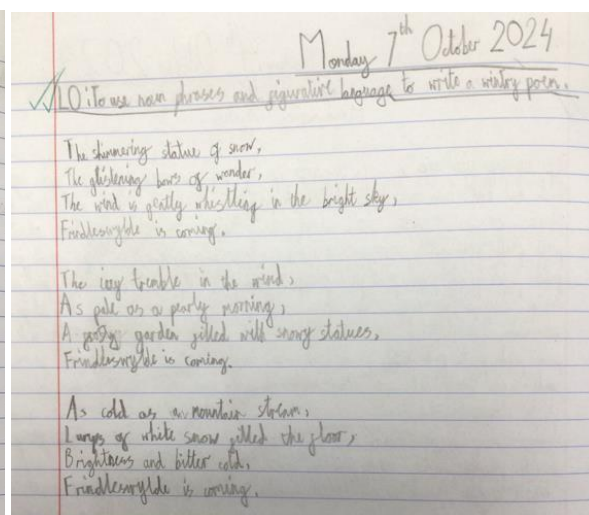 Monday 7th October 2024
LO: To use noun phrases and figurative language to write a wintry poem.
The shimmering statue of snow,
The glistening bows of wonder,
The wind is gently whistling in the bright sky,
Frindleswylde is coming.
The icy tremble in the wind,
As pale as a pearly morning,
A garden filled with snowy statues,
Frindleswylde is coming.
As cold as a mountain stream,
Lumps of white snow filled the floor,
Brightness and bitter cold,
Frindleswylde is coming.